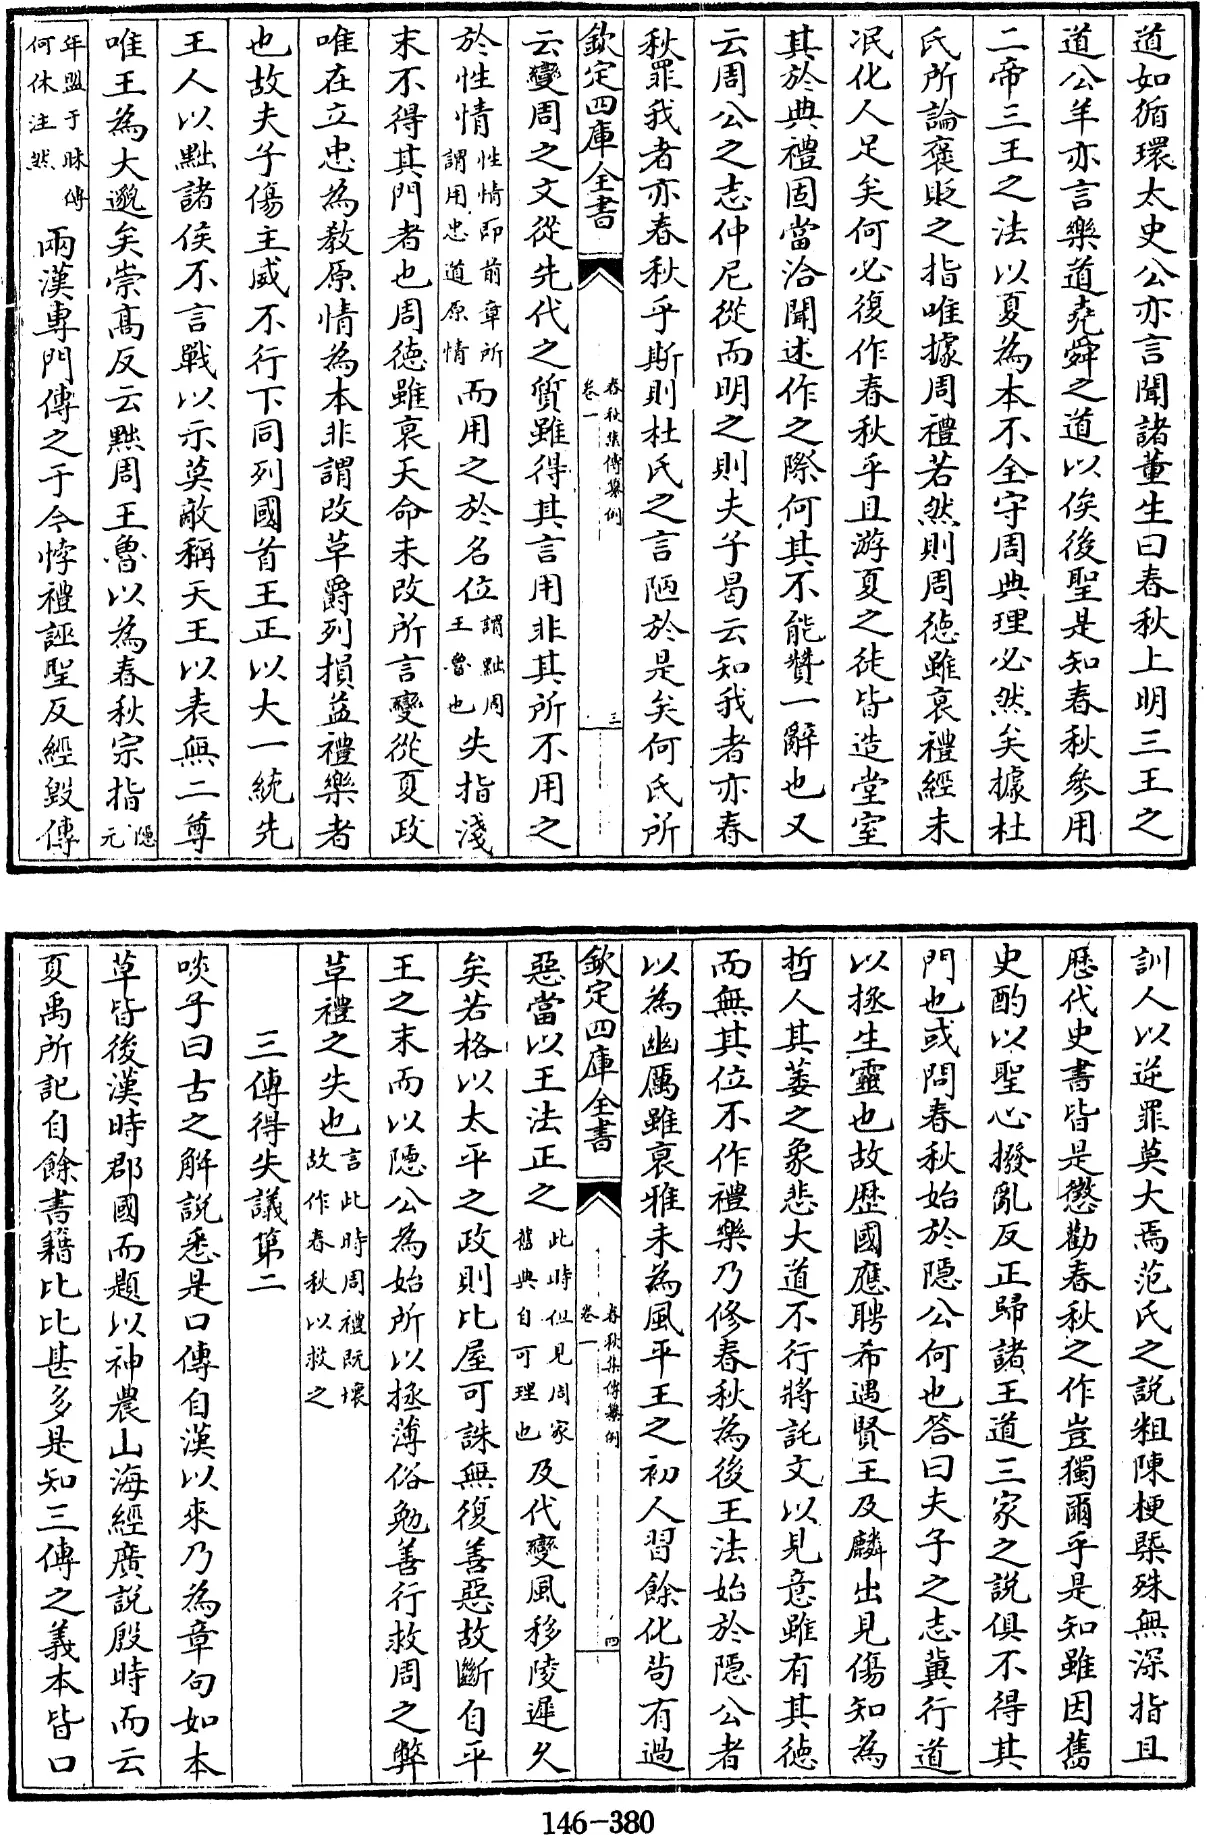 道如循環太史公亦言聞諸董生曰春秋上明三王之
道公羊亦言樂道堯舜之道以俟後聖是知春秋參用
二帝三王之法以夏為本不全守周典理必然矣據杜
氏所論褒貶之指唯據周禮若然則周德雖衰禮經未
泯化人足矣何必復作春秋乎且游夏之徒皆造堂室
其於典禮固當洽聞述作之際何其不能贊一辭也又
云周公之志仲尼從而明之則夫子曷云知我者亦春
秋罪我者亦春秋乎斯則杜氏之言陋於是矣何氏所
欽定四庫全書
春秋集傳纂例
卷一
三
云變周之文從先代之質雖得其言用非其所不用之
於性情性情即前章所謂用忠道原情而用之於名位謂黜周王魯也失指淺
末不得其門者也周德雖衰天命未改所言變從夏政
唯在立忠為教原情為本非謂改革爵列損益禮樂者
也故夫子傷主威不行下同列國首王正以大一統先
王人以黜諸侯不言戰以示莫敵稱天王以表無二尊
唯王為大邈矣崇高反云黜周王魯以為春秋宗指隱元
年盟于眛傳何休注然兩漢專門傳之于今悖禮誣聖反經毀傳
訓人以逆罪莫大焉范氏之說粗陳梗槩殊無深指且
歷代史書皆是懲勸春秋之作豈獨爾乎是知雖因舊
史酌以聖心撥亂反正歸諸王道三家之說俱不得其
門也或問春秋始於隱公何也答曰夫子之志冀行道
以拯生靈也故歷國應聘希遇賢王及麟出見傷知為
哲人其萎之象悲大道不行將託文以見意雖有其德
而無其位不作禮樂乃修春秋為後王法始於隱公者
以為幽厲雖衰雅未為風平王之初人習餘化茍有過
欽定四庫全書
春秋集傳纂例
卷一
四
惡當以王法正之此時但見周家舊典自可理也及代變風移陵遲久
矣若格以太平之政則比屋可誅無復善惡故斷自平
王之末而以隱公為始所以拯薄俗勉善行救周之弊
革禮之失也言此時周禮既壞故作春秋以救之
三傳得失議第二
啖子曰古之解說悉是口傳自漢以來乃為章句如本
草皆後漢時郡國而題以神農山海經廣說殷時而云
夏禹所記自餘書籍比比甚多是知三傳之義本皆口
146-380